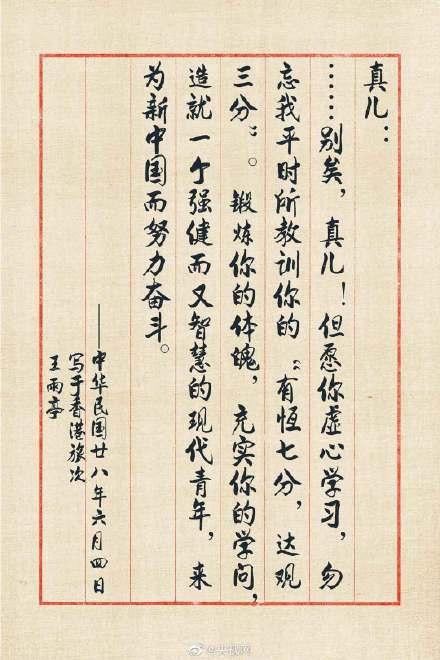 真儿：
……别矣，真儿！但愿你虚心学习，勿
忘我平时所教训你的“有恆七分，达观
三分”。锻炼你的体魄，充实你的学问，
造就一个强健而又智慧的现代青年，来
为新中国而努力奋斗。
——中华民国廿八年六月四日
写于香港旅次
王雨亭
@央视网